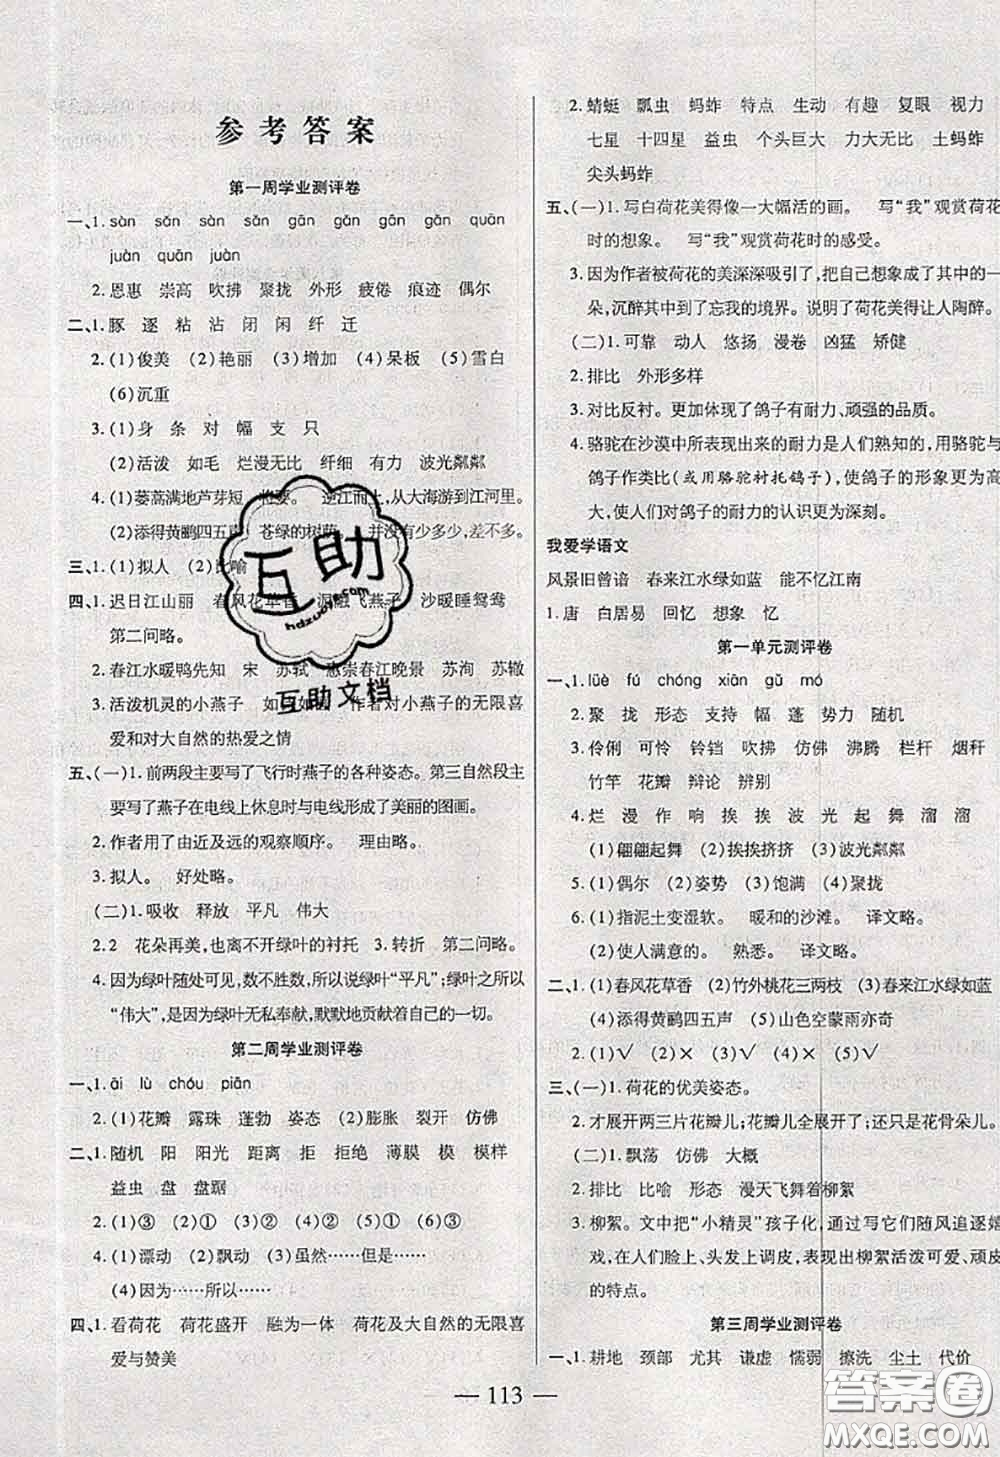 参考答案
第一周学业测评卷
一、1. sàn sǎn sàn sǎn gān gǎn gān gǎn quān
juàn quān juàn
2. 恩惠 崇高 吹拂 聚拢 外形 疲倦 痕迹 偶尔
二、1. 豚 逐 粘 沾 闭 闲 纤 迁
2. (1)俊美 (2)艳丽 (3)增加 (4)呆板 (5)雪白
(6)沉重
3. (1)身 条 对 幅 支 只
(2)活泼 如毛 烂漫无比 纤细 有力 波光粼粼
4. (1)蒌蒿满地芦芽短 将要。 逆江而上,从大海游到江河里。
(2)添得黄鹂四五声 苍绿的树荫。 并没有少多少,差不多。
三、1. (1)拟人 (2)比喻
四、1. 迟日江山丽 春风花草香 泥融飞燕子 沙暖睡鸳鸯
第二问略。
2. 春江水暖鸭先知 宋 苏轼 惠崇春江晚景 苏洵 苏辙
3. 活泼机灵的小燕子 作者对小燕子的无限喜
爱和对大自然的热爱之情
五、(一)1. 前两段主要写了飞行时燕子的各种姿态。第三自然段主
要写了燕子在电线上休息时与电线形成了美丽的图画。
2. 作者用了由近及远的观察顺序。 理由略。
3. 拟人。 好处略。
(二)1. 吸收 释放 平凡 伟大
2. 2 花朵再美,也离不开绿叶的衬托 3. 转折 第二问略。
4. 因为绿叶随处可见,数不胜数,所以说绿叶“平凡”;绿叶之所以
“伟大”,是因为绿叶无私奉献,默默地奉献着自己的一切。
第二周学业测评卷
一、1. āi lù chóu piān
2. (1)花瓣 露珠 蓬勃 姿态 (2)膨胀 裂开 仿佛
二、1. 随机 阳 阳光 距离 拒 拒绝 薄膜 模 模样
益虫 盘 盘踞
2. (1)③ (2)① (3)② (4)② (5)① (6)③
4. (1)漂动 (2)飘动 (3)虽然……但是……
(4)因为……所以……
四、1. 看荷花 荷花盛开 融为一体 荷花及大自然的无限喜
爱与赞美
2. 蜻蜓 瓢虫 蚂蚱 特点 生动 有趣 复眼 视力
七星 十四星 益虫 个头巨大 力大无比 土蚂蚱
尖头蚂蚱
五、(一)1. 写白荷花美得像一大幅活的画。 写“我”观赏荷花
时的想象。 写“我”观赏荷花时的感受。
3. 因为作者被荷花的美深深吸引了,把自己想象成了其中的一
朵,沉醉其中到了忘我的境界。说明了荷花美得让人陶醉。
(二)1. 可靠 动人 悠扬 漫卷 凶猛 矫健
2. 排比 外形多样
3. 对比反衬。更加体现了鸽子有耐力、顽强的品质。
4. 骆驼在沙漠中所表现出来的耐力是人们熟知的,用骆驼与
鸽子作类比(或用骆驼衬托鸽子),使鸽子的形象更为高
大,使人们对鸽子的耐力的认识更为深刻。
我爱学语文
风景旧曾谙 春来江水绿如蓝 能不忆江南
1. 唐 白居易 回忆 想象 忆
第一单元测评卷
一、1. lüè fú chóng xiān gǔ mó
2. 聚 拢 形态 支持 幅 蓬 势力 随机
3. 伶俐 可怜 铃铛 吹拂 仿佛 沸腾 栏杆 烟秆
竹竿 花瓣 辩论 辨别
4. 烂 漫 作 响 挨 挨 波 光 起 舞 溜 溜
(1)翩翩起舞 (2)挨挨挤挤 (3)波光粼粼
5. (1)偶尔 (2)姿势 (3)饱满 (4)聚拢
6. (1)指泥土变湿软。 暖和的沙滩。 译文略。
(2)使人满意的。 熟悉。 译文略。
二、1. (1)春风花草香 (2)竹外桃花三两枝 (3)春来江水绿如蓝
(4)添得黄鹂四五声 (5)山色空蒙雨亦奇
2. (1)√ (2)× (3)√ (4)× (5)√
三、(一)1. 荷花的优美姿态。
2. 才展开两三片花瓣儿;花瓣儿全展开了;还是花骨朵儿。
(二)1. 飘荡 仿佛 大概
2. 排比 比喻 形态 漫天飞舞着柳絮
3. 柳絮。文中把“小精灵”孩子化,通过写它们随风追逐嬉
戏,在人们脸上、头发上调皮,表现出柳絮活泼可爱、顽皮
的特点。
第三周学业测评卷
一、1. 耕地 颈部 尤其 谦虚 懦弱 擦洗 尘土 代价
— 113 —
互助
hdzuoye.com
互助文档
答案圈
MXQE.COM